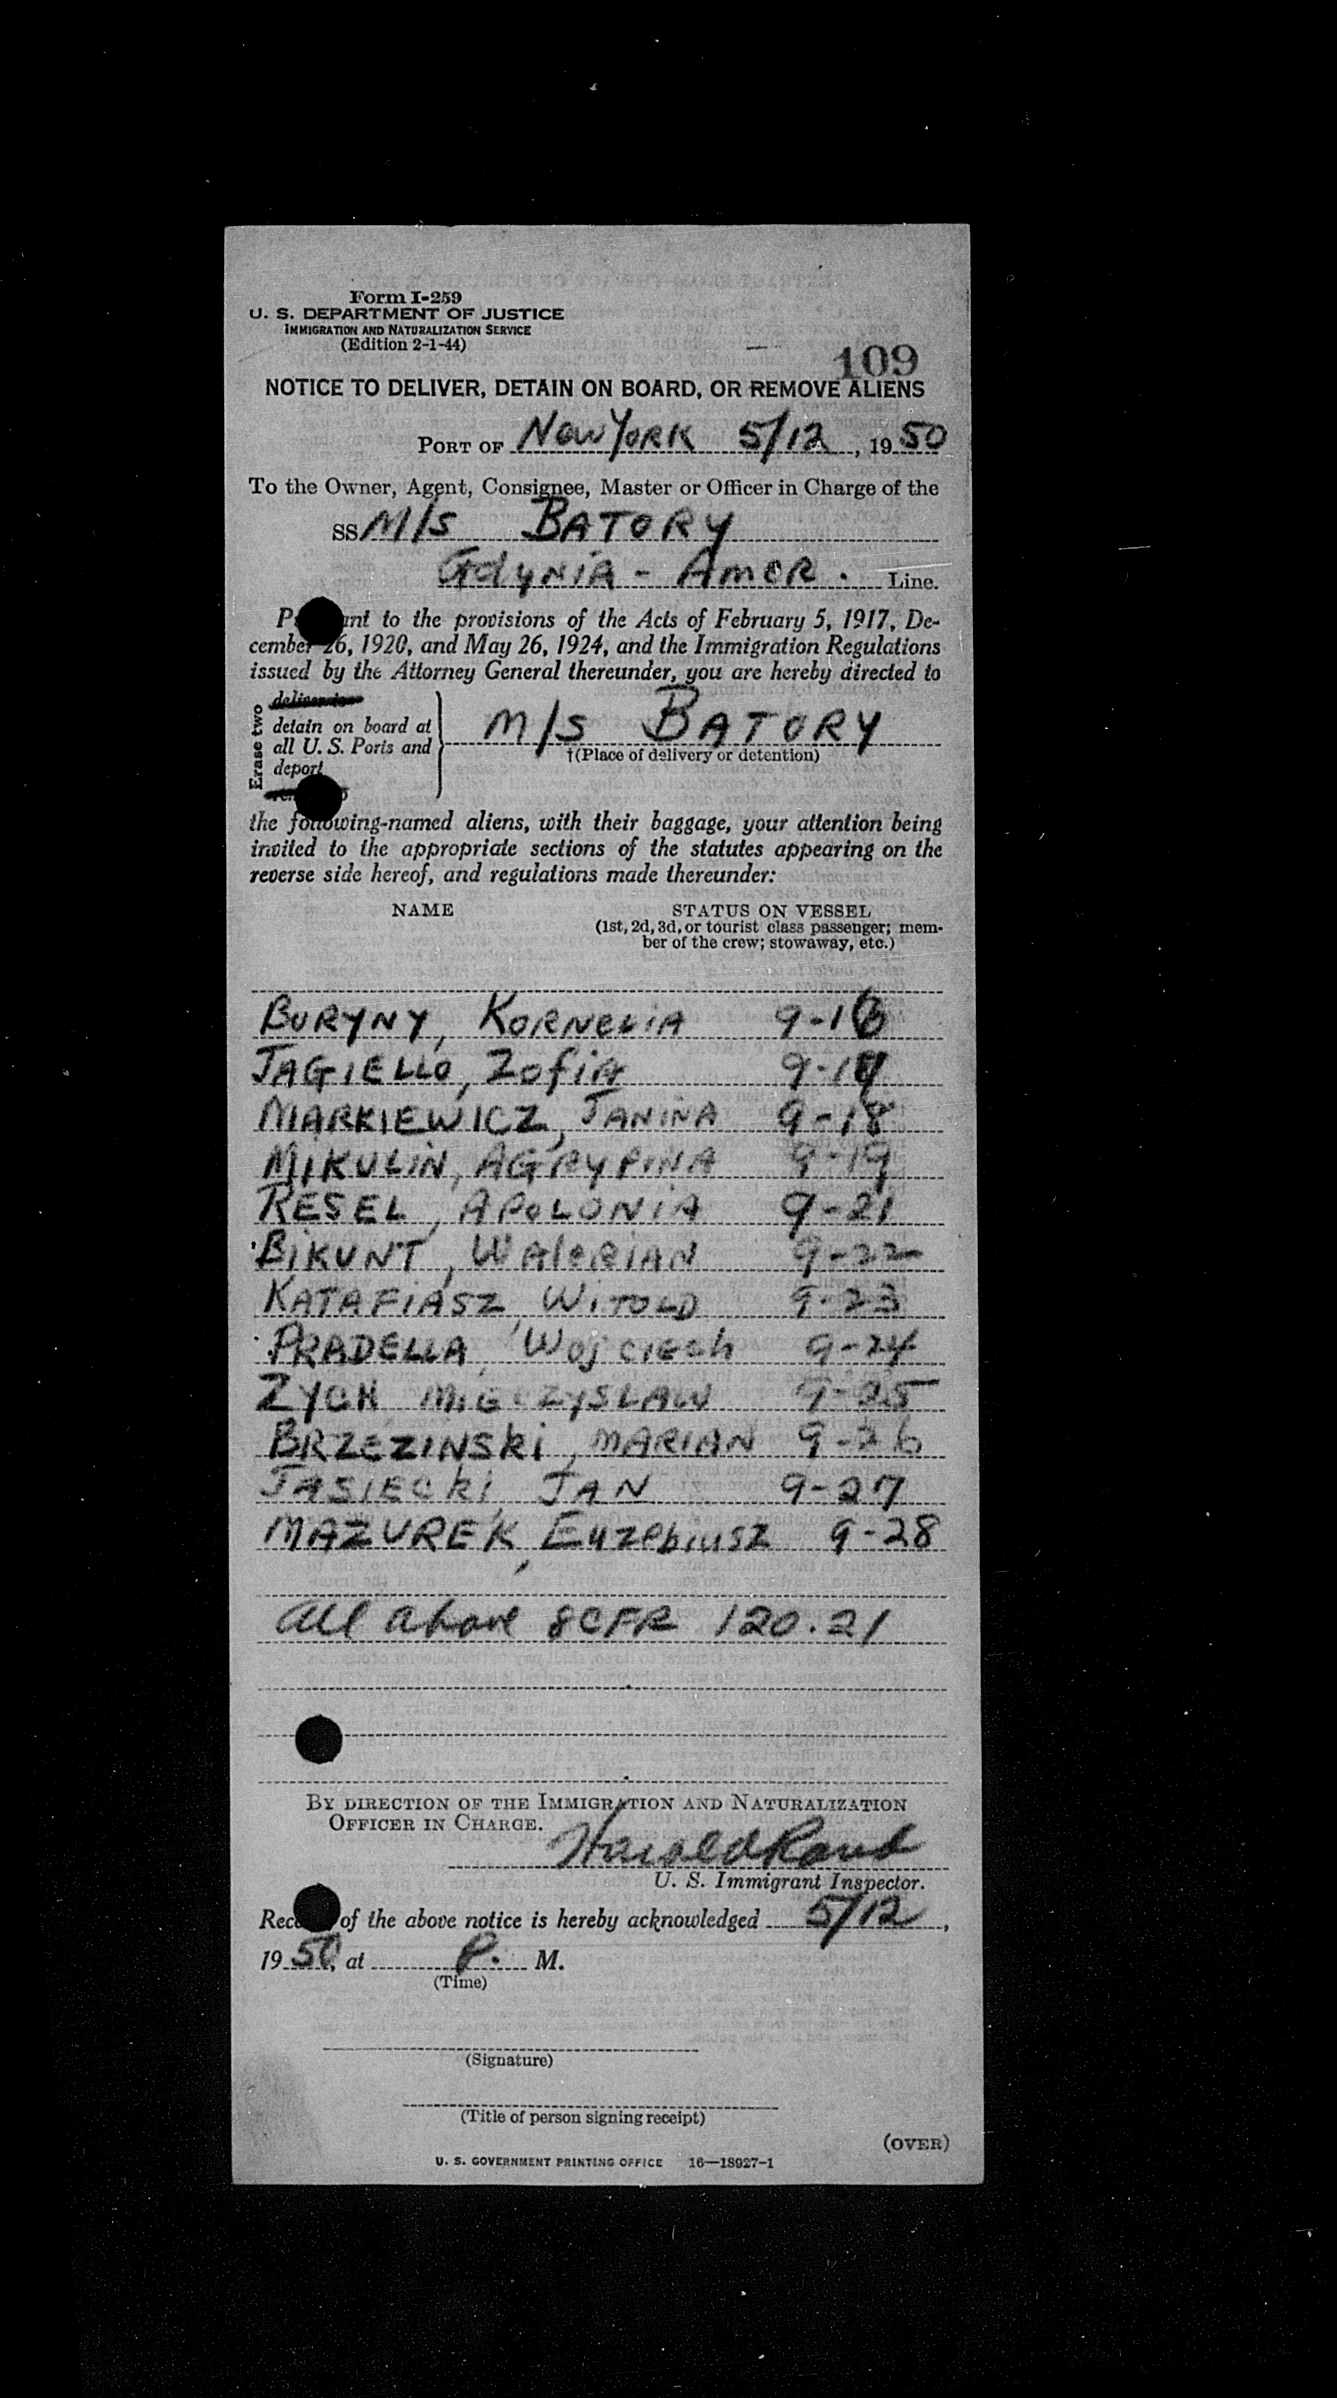 Form I-259
U. S. DEPARTMENT OF JUSTICE
IMMIGRATION AND NATURALIZATION SERVICE
(Edition 2-1-44)
109
NOTICE TO DELIVER, DETAIN ON BOARD, OR REMOVE ALIENS
PORT OF New York 5/12, 1950
To the Owner, Agent, Consignee, Master or Officer in Charge of the
SS M/S BATORY
Gdynia - Amer. Line.
to the provisions of the Acts of February 5, 1917, De-
cember 26, 1920, and May 26, 1924, and the Immigration Regulations
issued by the Attorney General thereunder, you are hereby directed to
Erase two
detain on board at
all U. S. Ports and
deport
M/S BATORY
†(Place of delivery or detention)
the following-named aliens, with their baggage, your attention being
invited to the appropriate sections of the statutes appearing on the
reverse side hereof, and regulations made thereunder:
NAME STATUS ON VESSEL
(1st, 2d, 3d, or tourist class passenger; mem-
ber of the crew; stowaway, etc.)
BURYNY, KORNELIA
JAGIELLO, Zofia
MARKIEWICZ, JANINA 9-18
MIKULIN, AGRYPINA 9-19
RESEL, APOLONIA 9-21
BIKUNT, WALERIAN 9-22
KATAFIASZ, WITOLD 9-23
PRADELLA, Wojciech 9-24
ZYCH MIECZYSLAW 9-25
BRZEZINSKI, MARIAN 9-26
JASIECKI, JAN 9-27
MAZUREK, Euzebiusz 9-28
All above 8CFR 120.21
BY DIRECTION OF THE IMMIGRATION AND NATURALIZATION
OFFICER IN CHARGE.
Harold
U. S. Immigrant Inspector.
of the above notice is hereby acknowledged 5/12,
1950, at P. M.
(Time)
(Signature)
(Title of person signing receipt)
(OVER)
U. S. GOVERNMENT PRINTING OFFICE 16—18927-1